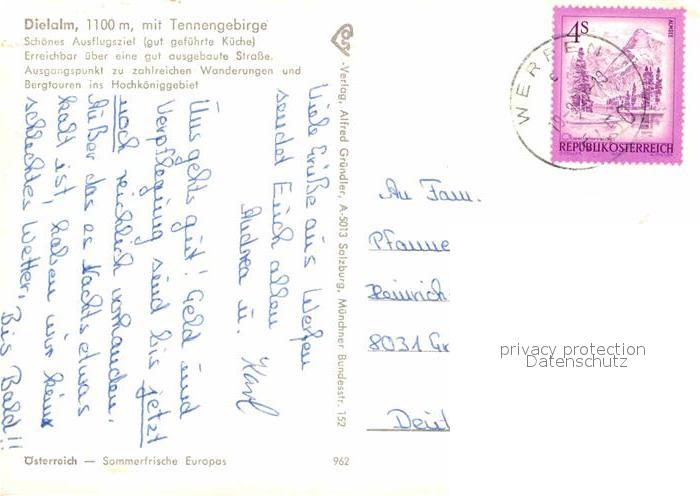 Dielalm, 1100 m, mit Tennengebirge
Schönes Ausflugsziel (gut geführte Küche)
Erreichbar über eine gut ausgebaute Straße.
Ausgangspunkt zu zahlreichen Wanderungen und
Bergtouren ins Hochköniggebiet
Viele Grüße aus Werfen
sendet Euch allen
Andrea u. Karl
Uns gehts gut! Geld und
Verpflegung sind bis jetzt
noch reichlich vorhanden.
Außer das es Nachts etwas
kalt ist, haben wir kein
schlechtes Wetter.
Bis Bald!!
Österreich — Sommerfrische Europas
962
-Verlag, Alfred Gründler, A-5013 Salzburg, Münchner Bundesstr. 152
4S
ALMSEE
REPUBLIK ÖSTERREICH
WERFEN
An Fam.
Pfanne
Heinrich
8031 Gr
Deut
privacy protection
Datenschutz